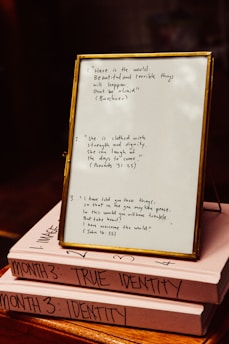 1 "Here is the world
Beautiful and terrible things
will happen.
Don't be afraid"
(Buechner)
2 "She is clothed with
strength and dignity
She can laugh at
the days to come"
(Proverbs 31:25)
3 "I have told you these things,
so that in me you may have peace.
In this world you will have trouble.
But take heart!
I have overcome the world"
(John 16:33)
1 IMAGE
2
3
4
MONTH 3: TRUE IDENTITY
MONTH 3: IDENTITY